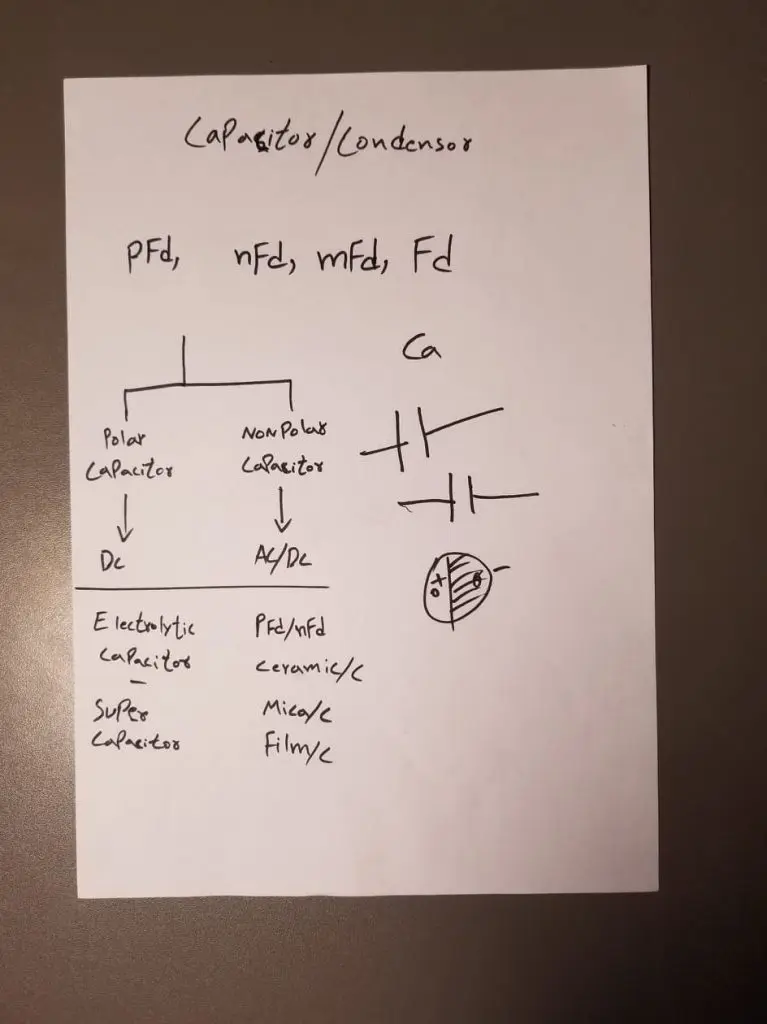 Capacitor/Condensor
PFd, nFd, mFd, Fd
Ca
Polar
Capacitor
NonPolar
Capacitor
DC
AC/DC
Electrolytic
Capacitor
Super
Capacitor
PFd/nFd
Ceramic/C
Mica/C
Film/C
+
-